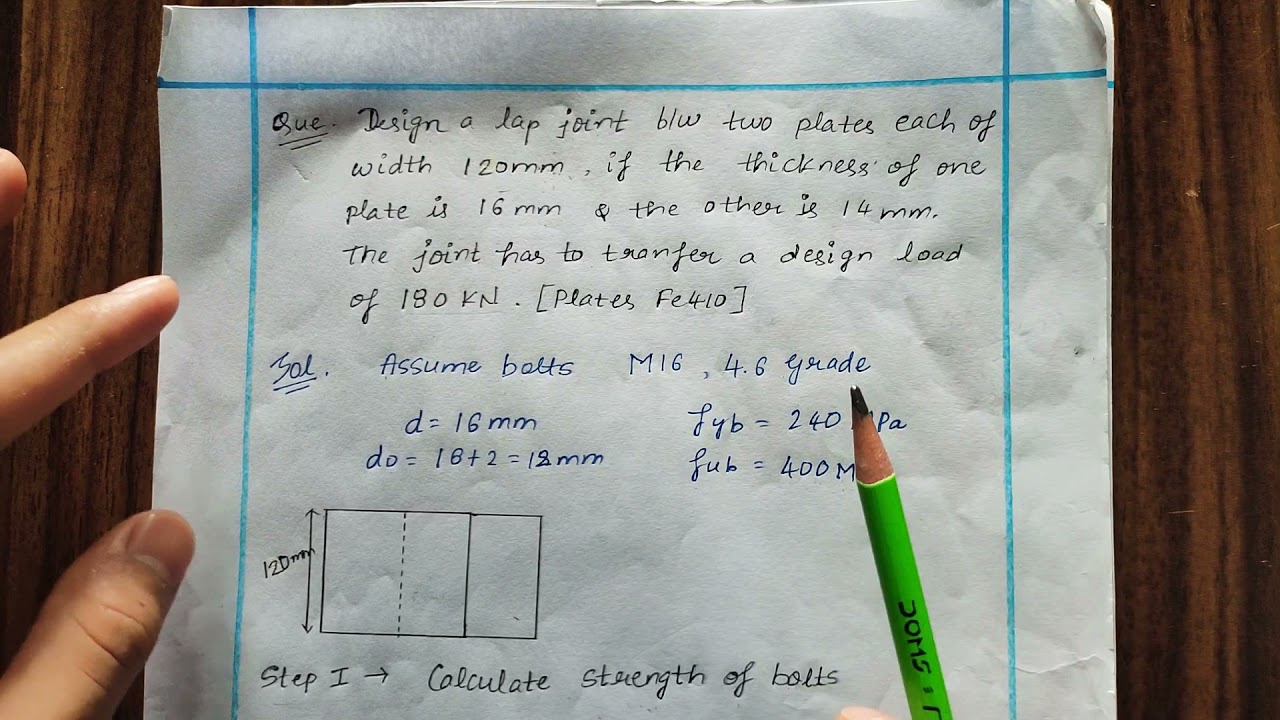 Que. Design a lap joint b/w two plates each of
width 120mm, if the thickness of one
plate is 16mm & the other is 14mm.
The joint has to tranfer a design load
of 180 KN. [Plates Fe410]
Sol. Assume bolts M16, 4.6 grade
d = 16mm fyb = 240 Pa
do = 16+2 = 18mm fub = 400M
120mm
Step I → Calculate strength of bolts
DOMS